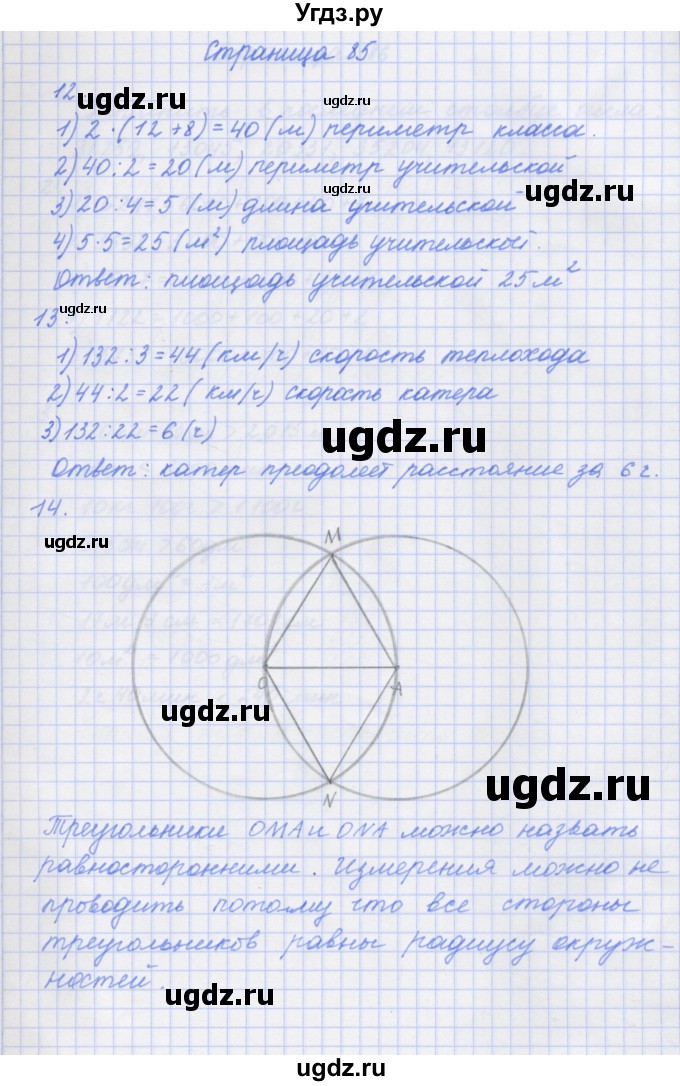 Угдз.ру
Страница 85
12
1) 2·(12+8)=40(м) периметр класса.
2) 40:2=20(м) периметр учительской
3) 20:4=5 (м) длина учительской
4) 5·5=25(м²) площадь учительской.
Ответ: площадь учительской 25м²
ugdz.ru
13.
1) 132:3=44(км/ч) скорость теплохода
2) 44:2=22(км/ч) скорость катера
3) 132:22=6(ч)
Ответ: катер преодолет расстояние за 6 ч.
14.
M
O
A
N
Треугольники OMA и ONA можно назвать
равносторонними. Измерения можно не
проводить потому что все стороны
треугольников равны радиусу окруж-
ностей.
ugdz.ru
ugdz.ru
ugdz.ru
ugdz.ru
ugdz.ru
ugdz.ru
ugdz.ru
ugdz.ru
ugdz.ru